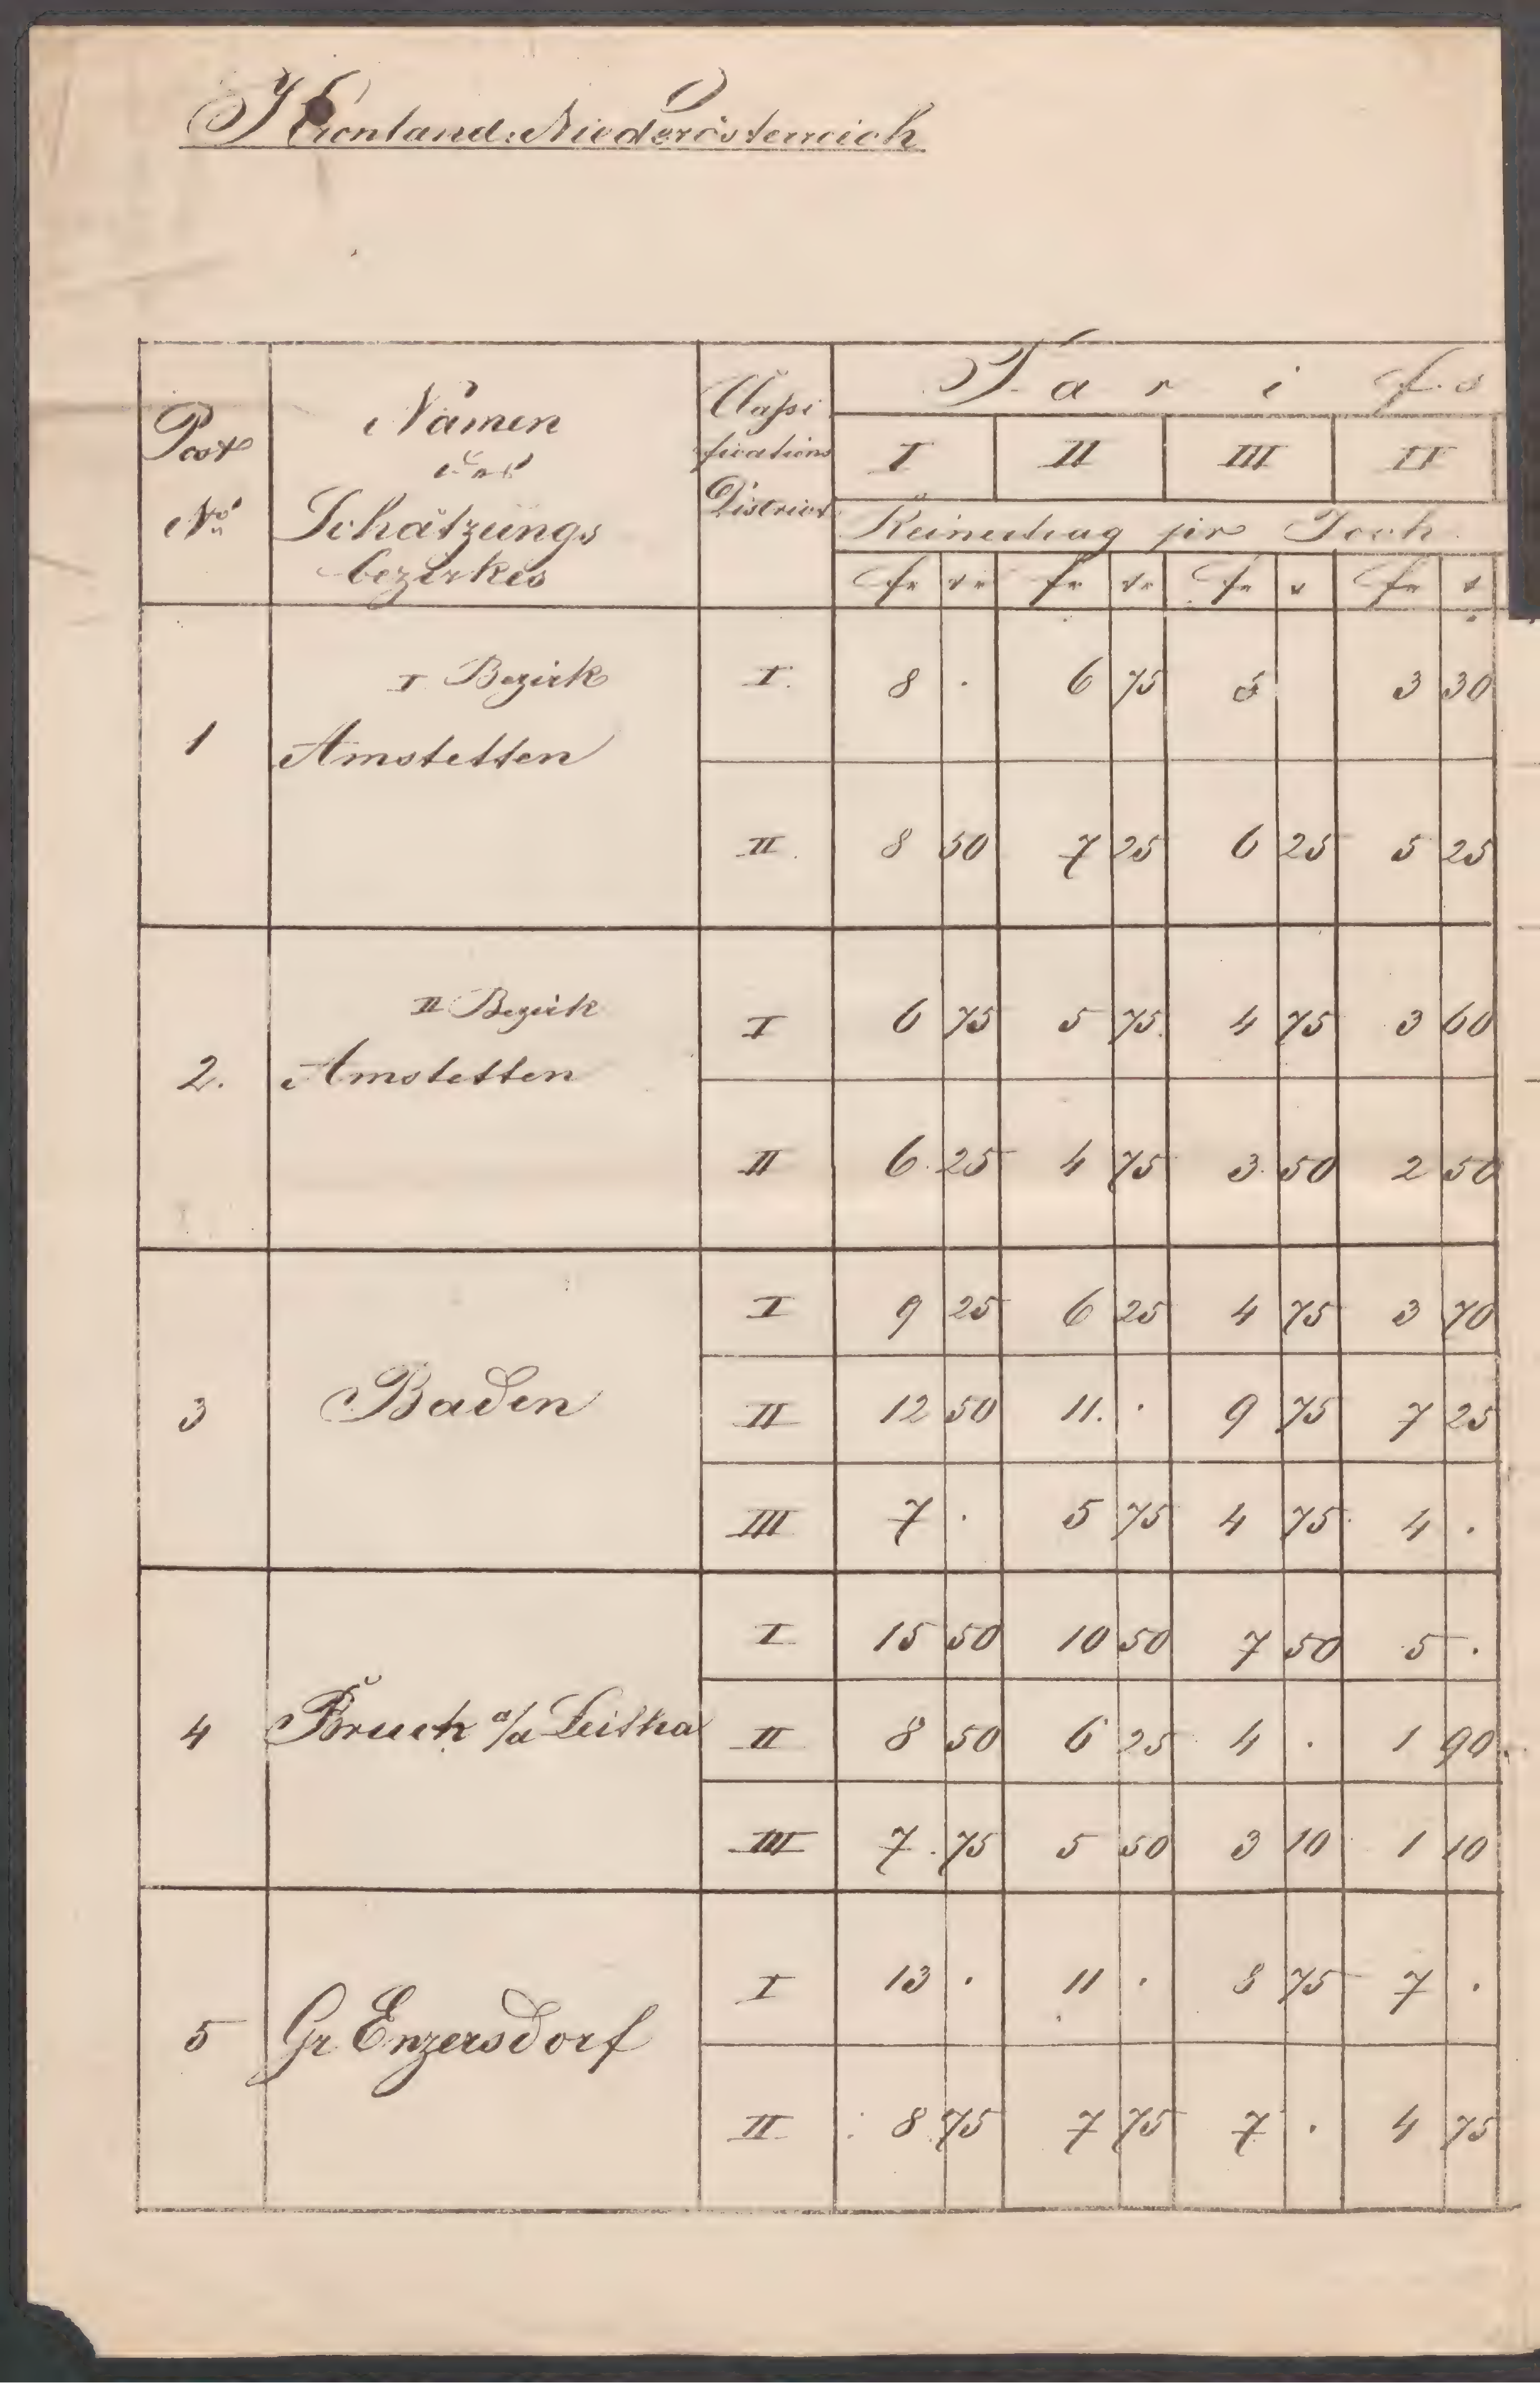 I Kronland: Niederösterreich
Post No Namen des Schätzungs bezirkes Classi fications District Tarifs
I II III IV
Reinertrag per Joch
fr kr fr kr fr k fr k
1 I Bezirk Amstetten I. 8 . 6 75 5 3 30
II. 8 50 7 25 6 25 5 25
2. II Bezirk Amstetten I 6 75 5 75. 4 75 3 60
II 6. 25 4 75 3. 50 2 50
3 Baden I 9 25 6 25 4 75 3 70
II 12 50 11. . 9 75 7 25
III 7 . 5 75 4 75 4 .
4 Bruck a/d Leitha I 15 50 10 50 7 50 5 .
II 8 50 6 25 4 . 1 90.
III 7 75 5 50 3 10 1 10
5 Gr Enzersdorf I 13 . 11 . 8 75 7 .
II 8 75 7 75 7 . 4 75